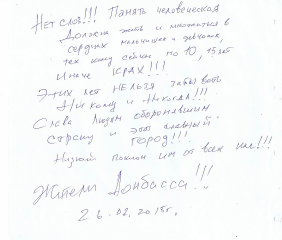 Нет слов!!! Память человеческая
Должна жить и множиться в
сердцах мальчишек и девчонок,
тех кому сейчас по 10, 15 лет
Иначе КРАХ!!!
Этих лет НЕЛЬЗЯ забывать
Никому и Никогда!!!
Слава Людям оборонявшим
страну и этот славный
город!!!
Низкий поклон им от всех нас!!!
Жители Донбасса!!!
26.08.2018г.